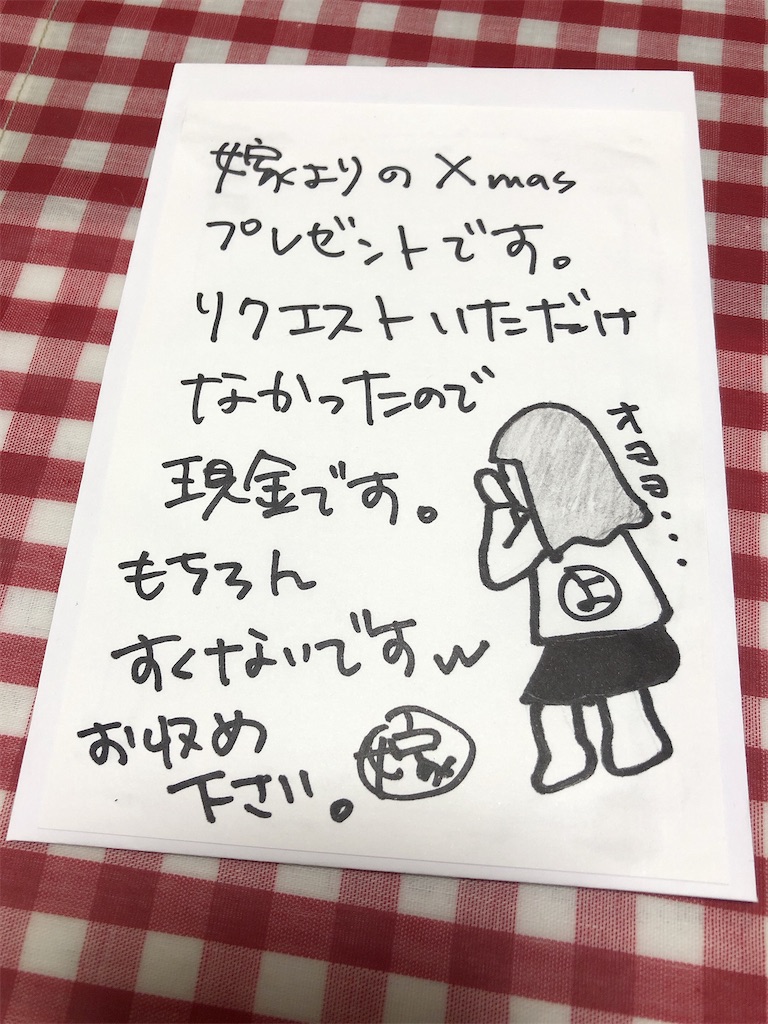 嫁よりのXmas
プレゼントです。
リクエストいただけ
なかったので
現金です。
もちろん
すくないですw
お収め
下さい。
嫁
オヨヨ...
よ